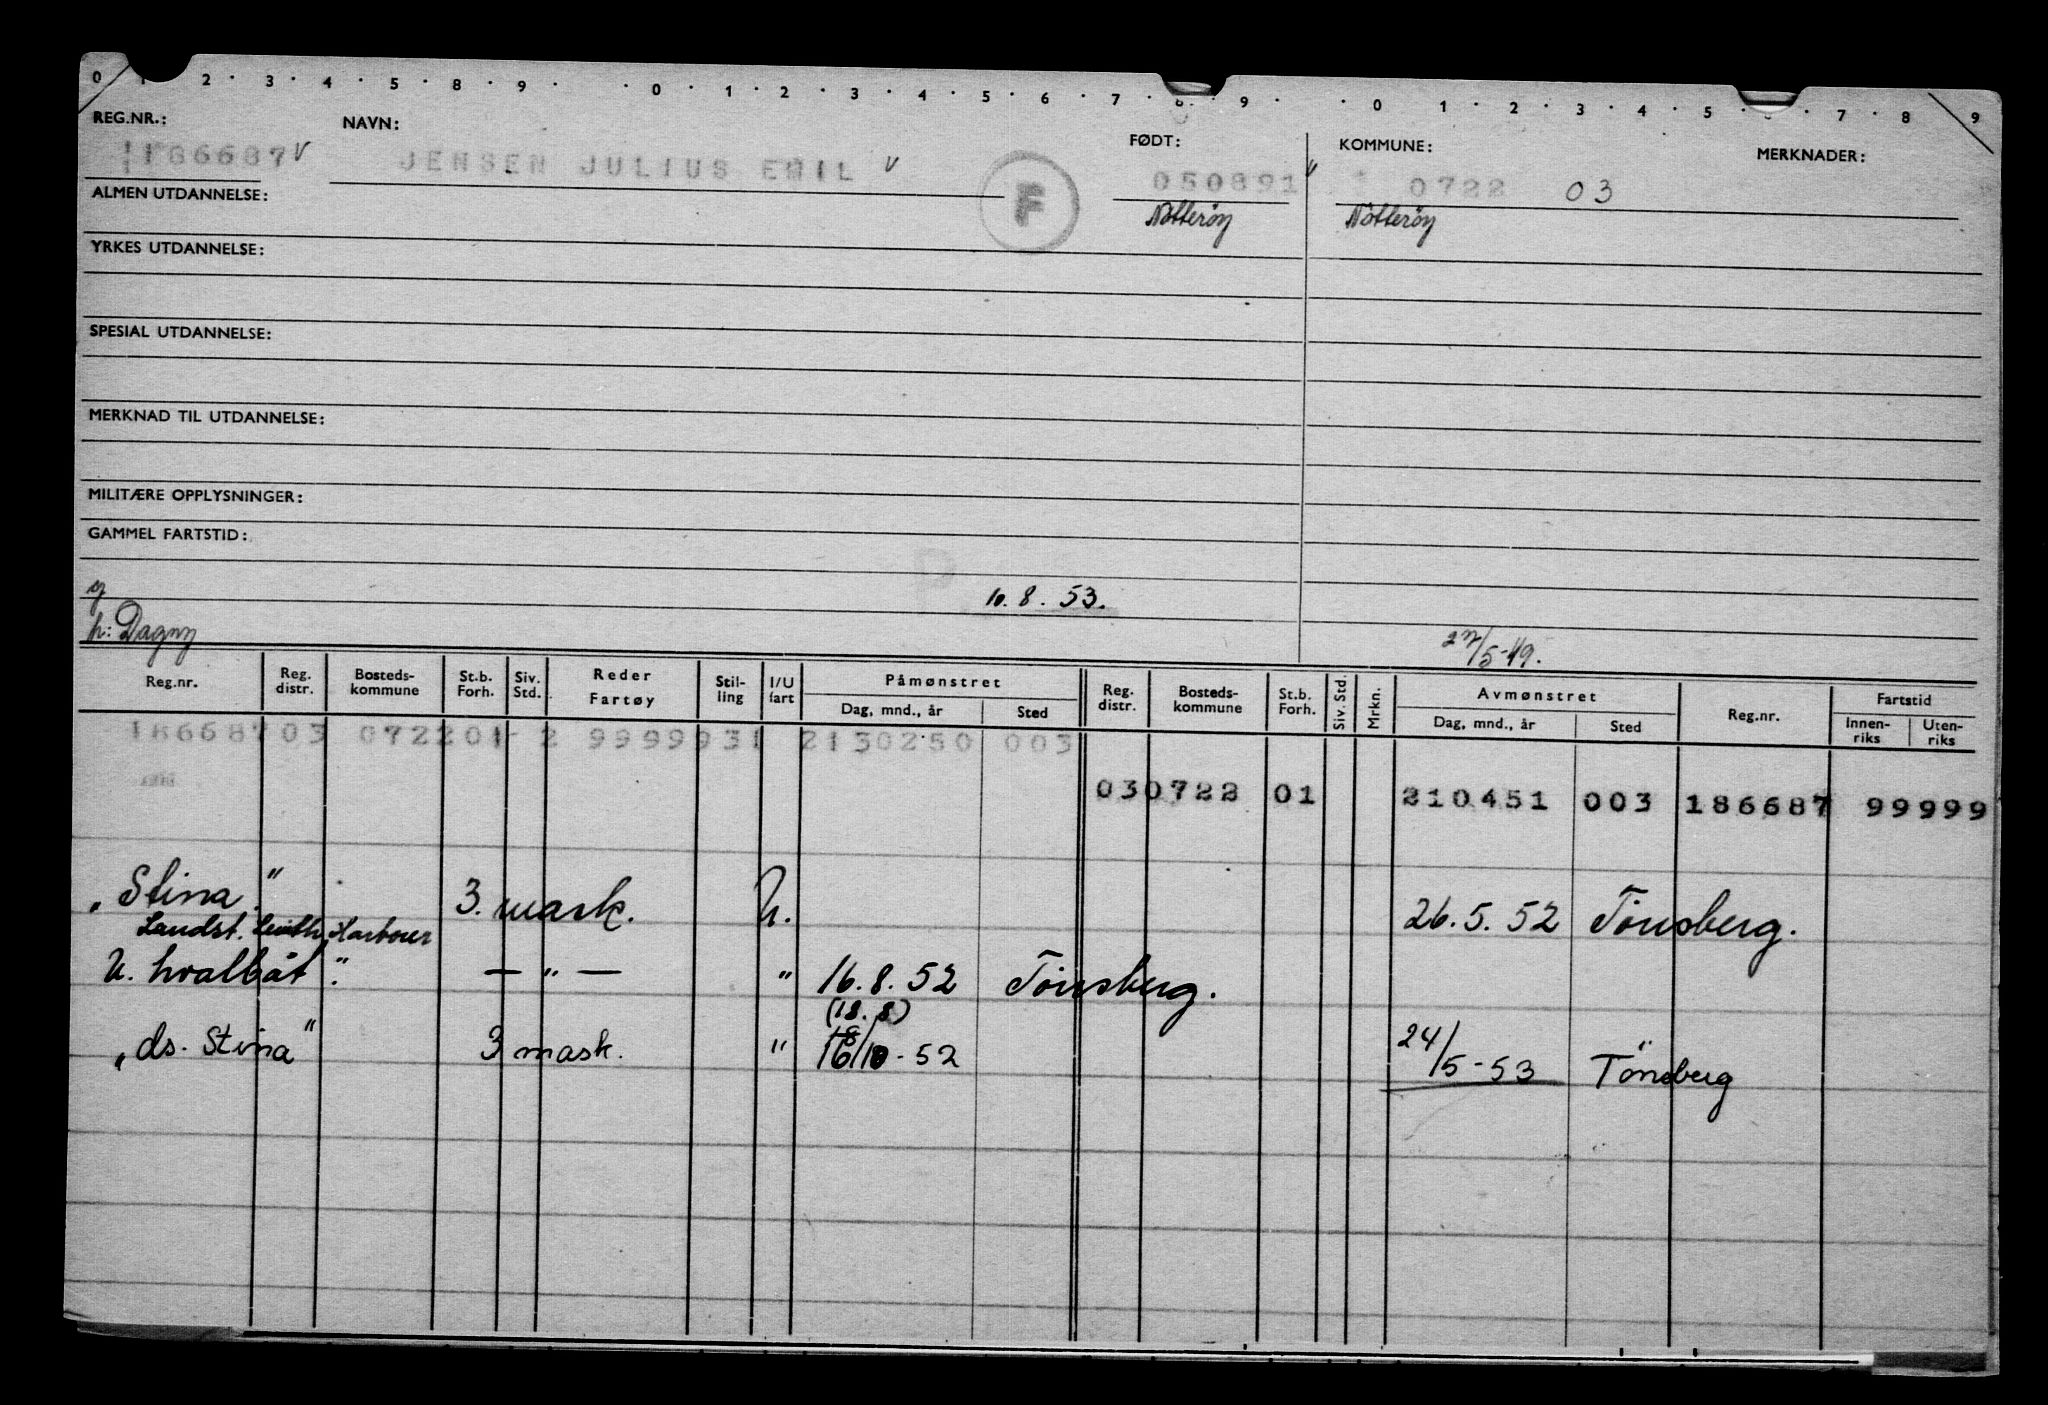 0 1 · 2 · 3 · 4 · 5 · 8 · 9 · · 0 · 1 · 2 · 3 · 4 · 5 · 6 · 7 · 8 · 9 · · 0 · 1 · 2 · 3 · 4 · 5 · · 7 · 8 · 9
REG.NR.: NAVN: FØDT: KOMMUNE: MERKNADER:
186687 V JENSEN JULIUS EMIL V F 050891 V 0722 03
ALMEN UTDANNELSE: Nötteröy Nötteröy
YRKES UTDANNELSE:
SPESIAL UTDANNELSE:
MERKNAD TIL UTDANNELSE:
MILITÆRE OPPLYSNINGER:
GAMMEL FARTSTID:
g 10.8.53.
h: Dagny 27/5-49.
Reg.nr. Reg. distr. Bosteds- kommune St.b. Forh. Siv. Std. Reder Fartøy Stil- ling I/U fart Påmønstret Dag, mnd., år Sted Reg. distr. Bosteds- kommune St.b. Forh. Siv. Std. Mrkn. Avmønstret Dag, mnd., år Sted Reg.nr. Fartstid Innen- riks Uten- riks
186687 03 0722 01 - 2 9999 931 2130250 003
03 0722 01 210451 003 186687 99999
"Stina." 3. mask. U. 26.5.52 Tönsberg.
Landst. Leith Harbour
U. hvalbåt". — " — " 16.8.52 Tönsberg.
(18.8)
"ds. Stina" 3 mask. " 16/10-52 24/5-53 Tönsberg